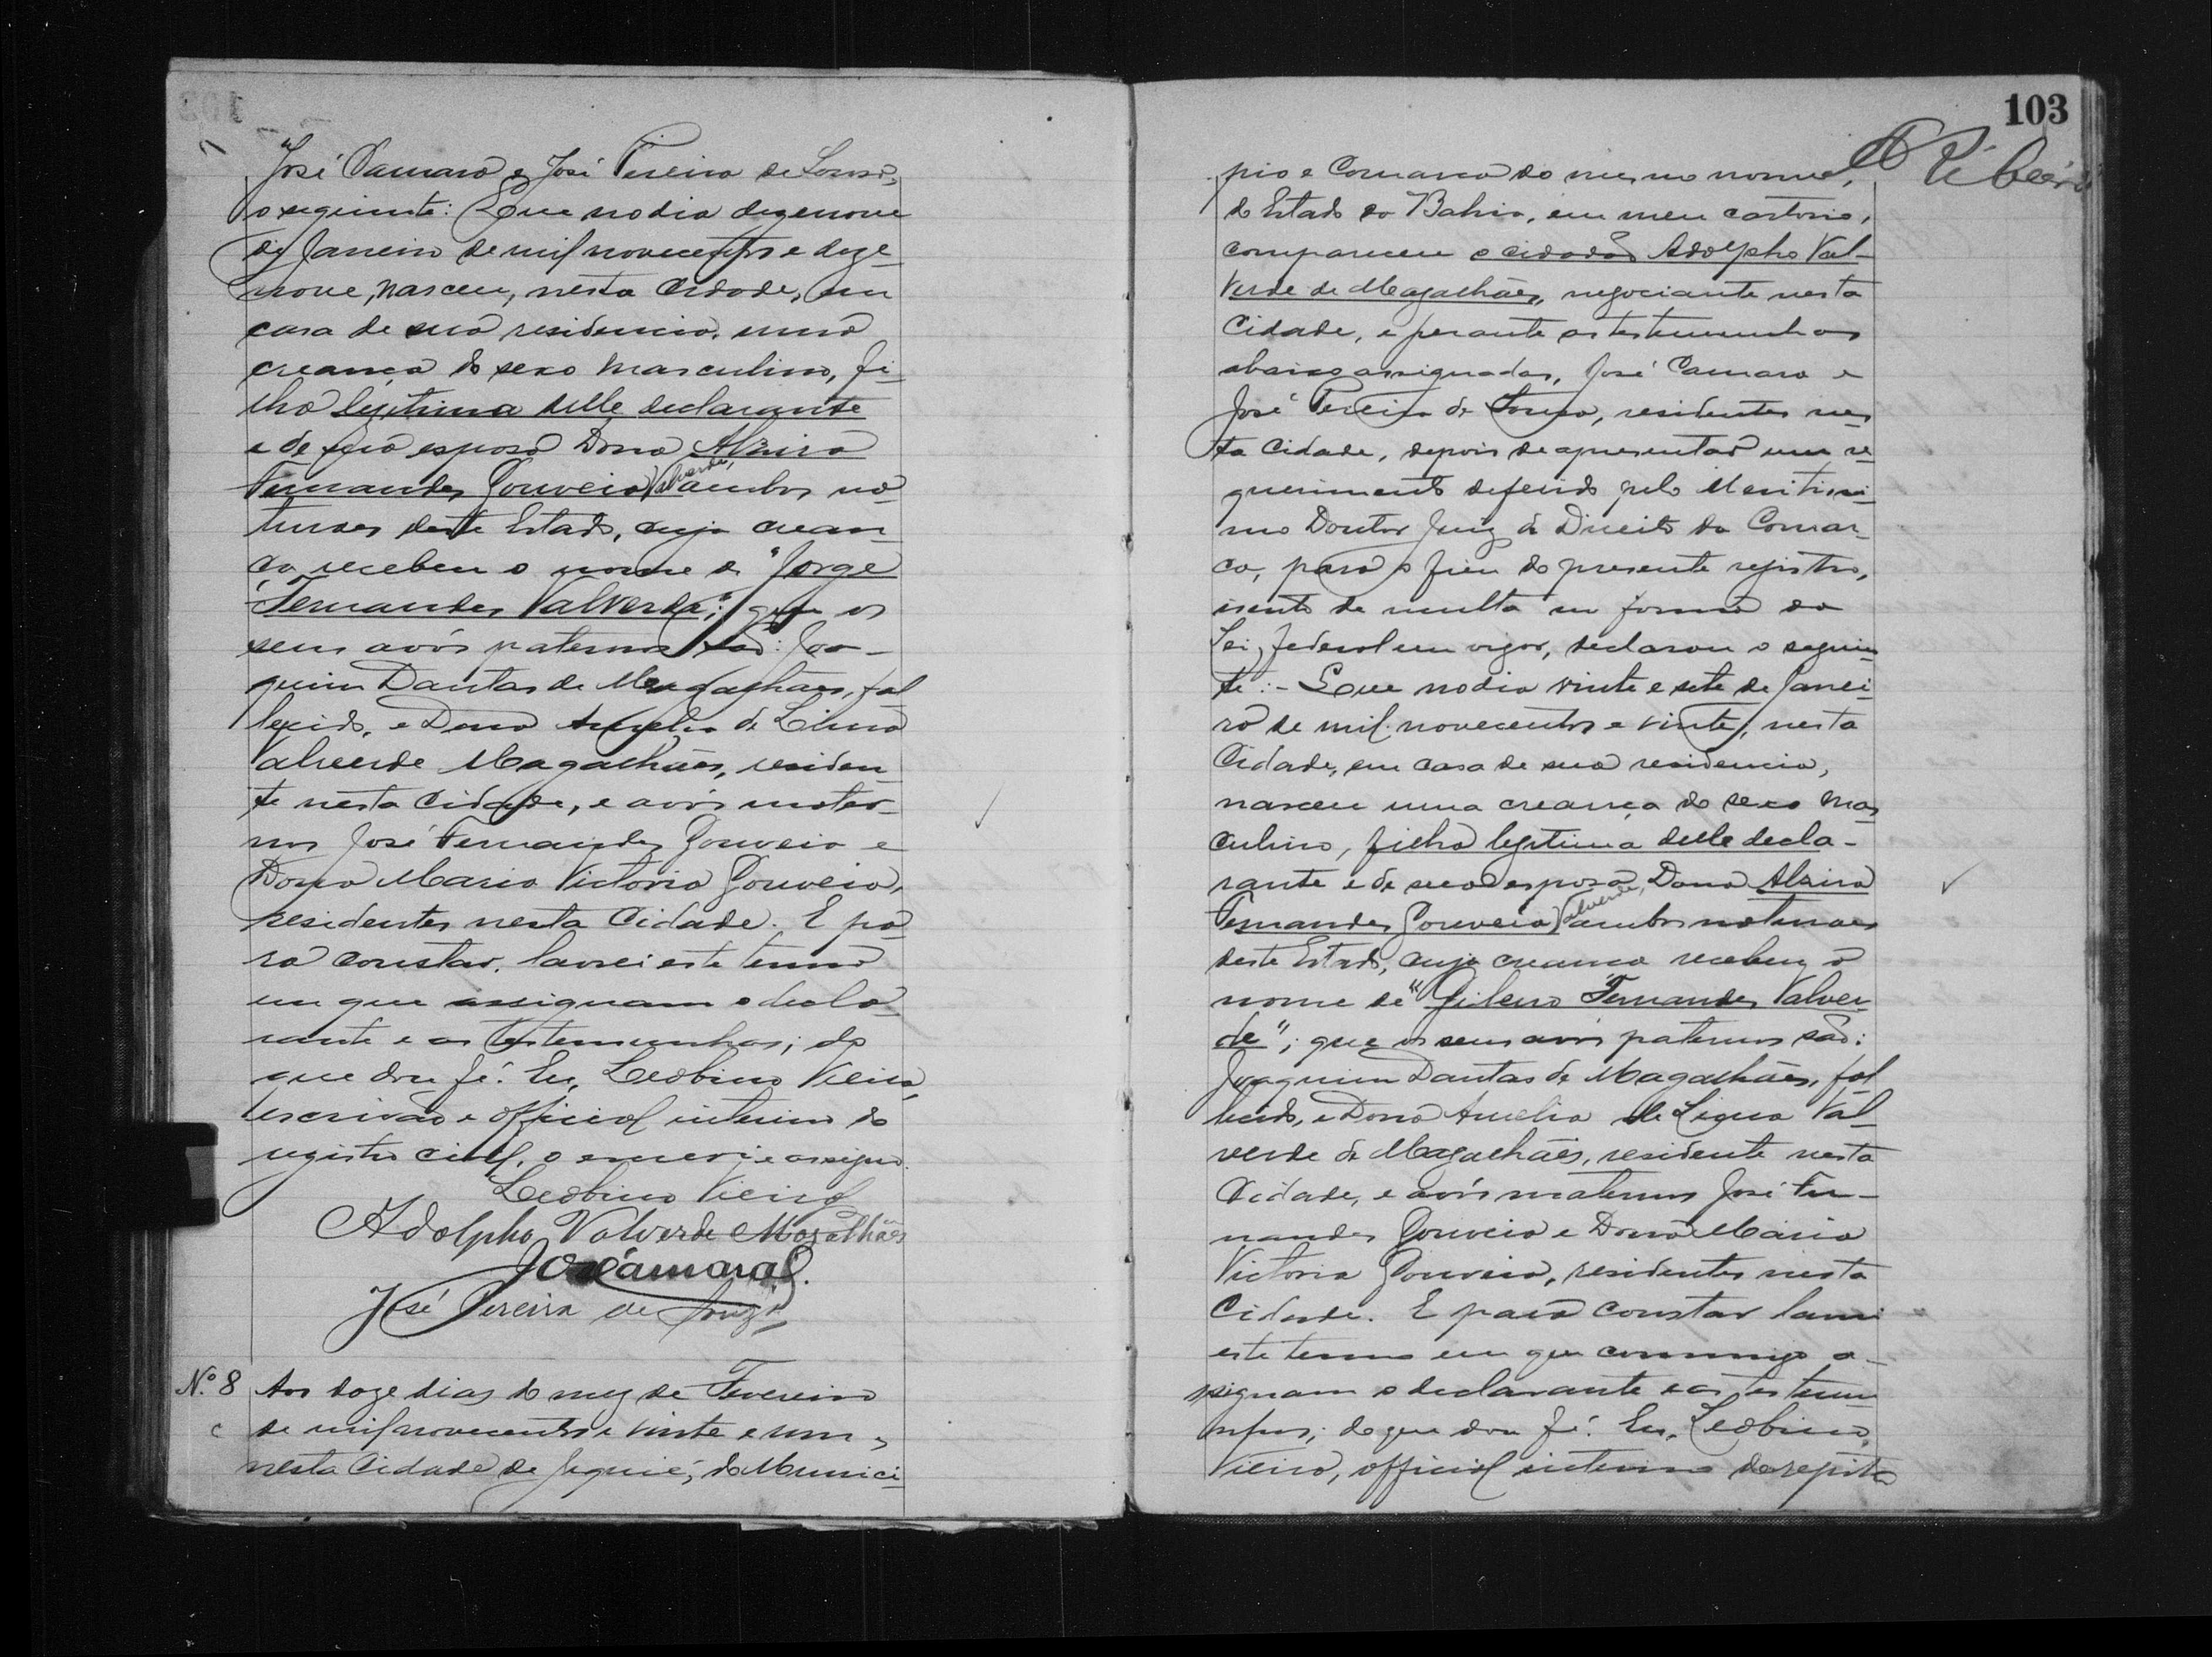 José Camara e José Pereira de Souza,
o seguinte: Que no dia dezenove
de Janeiro de mil novecentos e deze-
nove, nasceu, nesta Cidade, em
casa de sua residencia, uma
creança do sexo masculino, fi-
lha legitima delle declarante
e de sua esposa Dona Alzira
Fernandes Gouveia Valverde, ambos na-
turaes deste Estado, cuja crean-
ça recebeu o nome de "Jorge
Fernandes Valverde"; que os
seus avós paternos são: Joa-
quim Dantas de Magalhães, fal-
lecido, e Dona Amelia de Lima
Valverde Magalhães, residen-
te nesta Cidade, e avós mater-
nos José Fernandes Gouveia e
Dona Maria Victoria Gouveia,
residentes nesta Cidade. E pa-
ra constar, lavrei este termo
em que assignam o decla-
rante e as testemunhas; do
que dou fé. Eu, Leobino Vieira,
escrivão e official interino do
registro civil, o escrevi e assigno.
Leobino Vieira
Adolpho Valverde Magalhães
José Camara
José Pereira de Souza
Nº 8 Aos doze dias do mez de Fevereiro
c de mil novecentos e vinte e um,
nesta Cidade de Jequié, do Munici-
103
Ribeiro
pio e Comarca do mesmo nome,
do Estado da Bahia, em meu cartorio,
compareceu o cidadão Adolpho Val-
verde de Magalhães, negociante nesta
Cidade, e perante as testemunhas
abaixo assignadas, José Camara e
José Pereira de Souza, residentes nes-
ta Cidade, depois de apresentar um re-
querimento deferido pelo Meritissi-
mo Doutor Juiz de Direito da Comar-
ca, para o fim do presente registro,
isento de multa na forma da
Lei federal em vigor, declarou o seguin-
te:- Que no dia vinte e sete de Janei-
ro de mil novecentos e vinte, nesta
Cidade, em casa de sua residencia,
nasceu uma creança do sexo mas-
culino, filha legitima delle decla-
rante e de sua esposa Dona Alzira
Fernandes Gouveia Valverde, ambos naturaes
deste Estado, cuja creança recebeu o
nome de "Gileno Fernandes Valver-
de"; que os seus avós paternos são:
Joaquim Dantas de Magalhães, fal-
lecido, e Dona Amelia de Lima Val-
verde de Magalhães, residente nesta
Cidade, e avós maternos José Fer-
nandes Gouveia e Dona Maria
Victoria Gouveia, residentes nesta
Cidade. E para constar lavrei
este termo em que commigo a-
ssignam o declarante e as testemu-
nhas; do que dou fé. Eu, Leobino
Vieira, official interino do registro